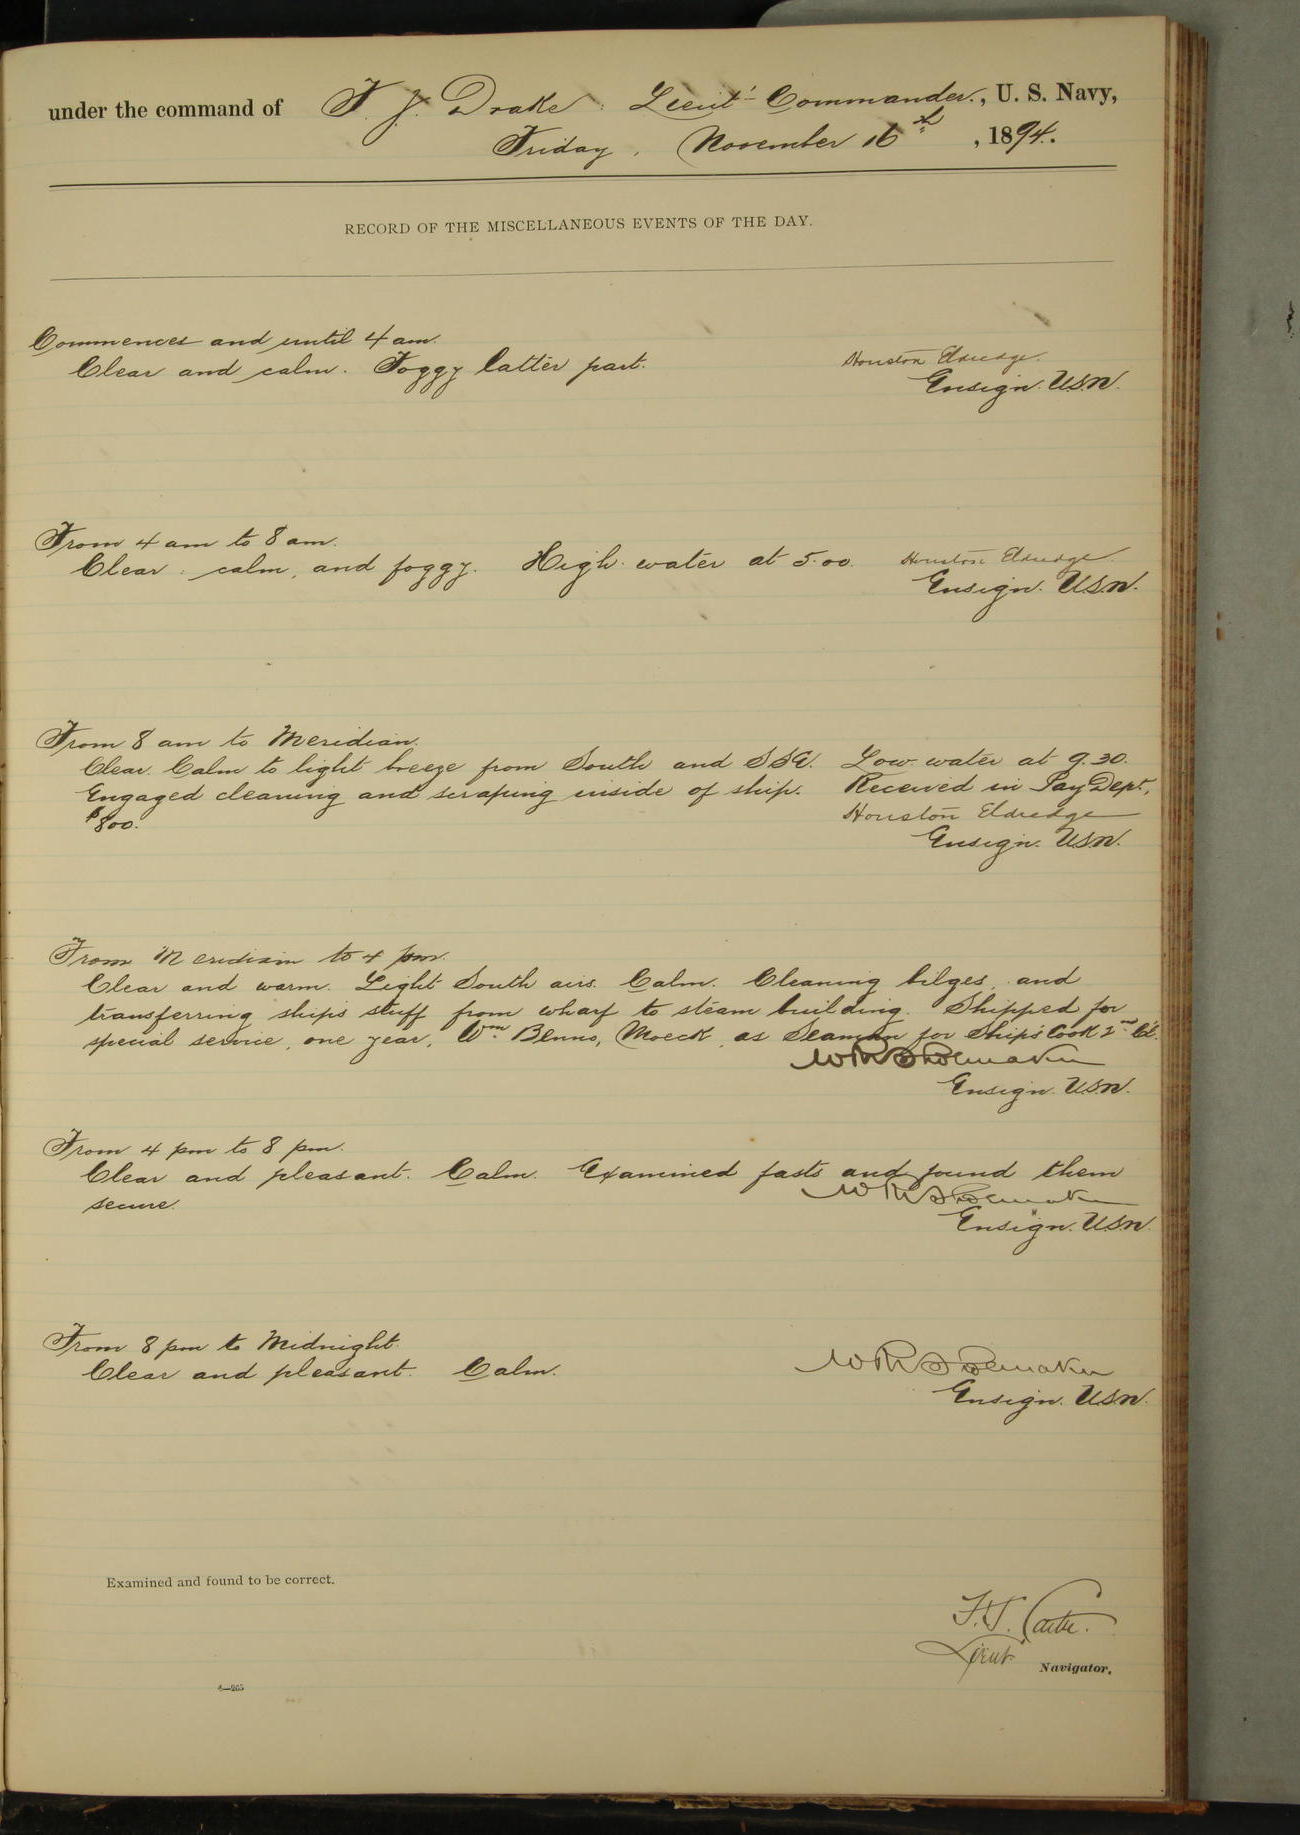 under the command of F. J. Drake. Lieut- Commander., U. S. Navy,
Friday, November 16th, 1894.
RECORD OF THE MISCELLANEOUS EVENTS OF THE DAY.
Commences and until 4 am.
Clear and calm. Foggy latter part. Houston Eldredge.
Ensign. U.S.N.
From 4 am to 8 am.
Clear: calm, and foggy. High water at 5.00. Houston Eldredge.
Ensign. U.S.N.
From 8 am to Meridian.
Clear. Calm to light breeze from South and Low water at 9.30.
Engaged cleaning and scraping inside of ship. Received in Pay Dept,
$800. Houston Eldredge
Ensign. U.S.N.
From Meridian to 4 pm.
Clear and warm. Light South airs. Calm. Cleaning bilges, and
transferring ships stuff from wharf to steam building. Shipped for
special service, one year, Wm. Benno, Moeck, as Seaman for Ship's Cook 2nd Cl.
W R Shoemaker
Ensign. U.S.N.
From 4 pm to 8 pm.
Clear and pleasant. Calm. Examined fasts and found them
secure. W R Shoemaker
Ensign. U.S.N.
From 8 pm to Midnight.
Clear and pleasant. Calm. W R Shoemaker
Ensign. U.S.N.
Examined and found to be correct.
Lieut Navigator.